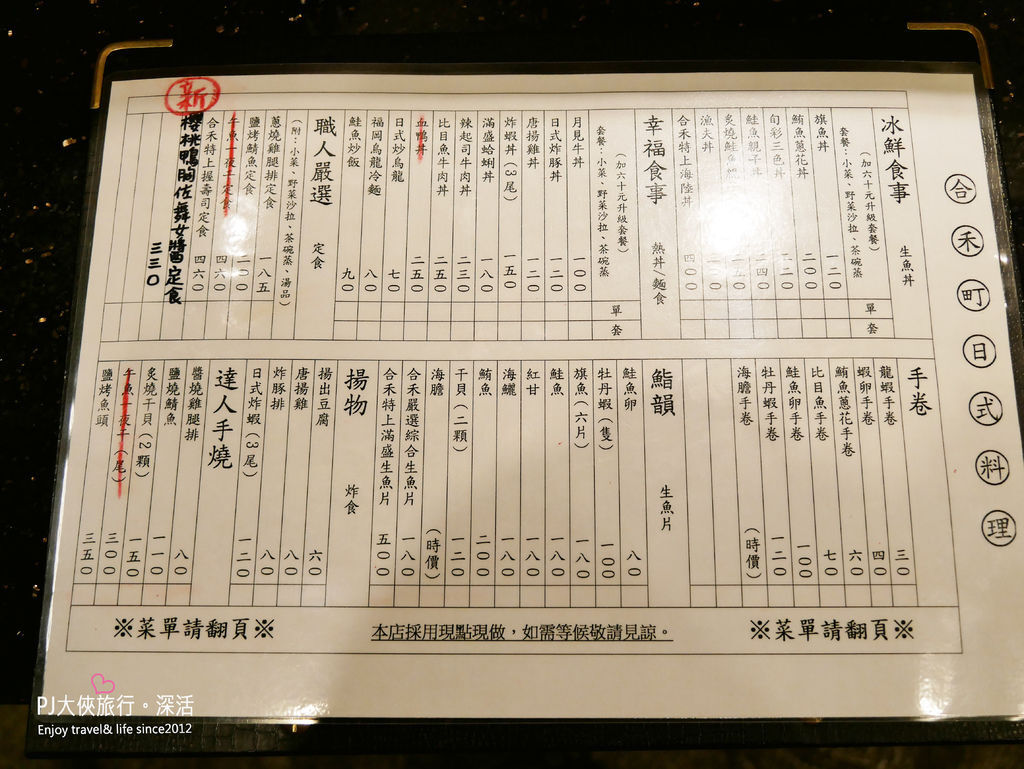 合禾町日式料理
冰鮮食事 生魚丼
(加六十元升級套餐)
套餐:小菜、野菜沙拉、茶碗蒸 單 套
旗魚丼 一二〇
鮪魚蔥花丼 一二〇
旬彩三色丼
鮭魚親子丼 二四〇
炙燒鮭魚
漁夫丼
合禾特上海陸丼 四〇〇
幸福食事 熱丼/麵食
(加六十元升級套餐)
套餐:小菜、野菜沙拉、茶碗蒸 單 套
月見牛丼 一〇〇
日式炸豚丼 一二〇
唐揚雞丼 一二〇
炸蝦丼(3尾) 一五〇
滿盛蛤蜊丼 一八〇
辣起司牛肉丼 二三〇
比目魚牛肉丼 二五〇
血鴨丼 二五〇
日式炒烏龍 七〇
福岡烏龍冷麵 八〇
鮭魚炒飯 九〇
職人嚴選 定食
(附:小菜、野菜沙拉、茶碗蒸、湯品)
蔥燒雞腿排定食 一八五
鹽烤鯖魚定食
午魚一夜干定食 四六〇
合禾特上握壽司定食 四六〇
新 櫻桃鴨胸佐舞女醬定食 三三〇
手卷
龍蝦手卷 三〇
蝦卵手卷 四〇
鮪魚蔥花手卷 六〇
比目魚手卷 七〇
鮭魚卵手卷 一〇〇
牡丹蝦手卷 一二〇
海膽手卷 (時價)
鮨韻 生魚片
鮭魚卵 八〇
牡丹蝦(隻) 一〇〇
旗魚(六片) 一八〇
鮭魚 一八〇
紅甘 一八〇
海鱺 一八〇
鮪魚 二〇〇
干貝(二顆) 一二〇
海膽 (時價)
合禾嚴選綜合生魚片 一八〇
合禾特上滿盛生魚片 五〇〇
揚物 炸食
揚出豆腐 六〇
唐揚雞 八〇
炸豚排 八〇
日式炸蝦(3尾) 一二〇
達人手燒
醬燒雞腿排 八〇
鹽燒鯖魚 一一〇
炙燒干貝(2顆) 一五〇
午魚一夜干(尾) 三〇〇
鹽烤魚頭 三五〇
※菜單請翻頁※
本店採用現點現做,如需等候敬請見諒。
※菜單請翻頁※
PJ大俠旅行。深活
Enjoy travel& life since2012